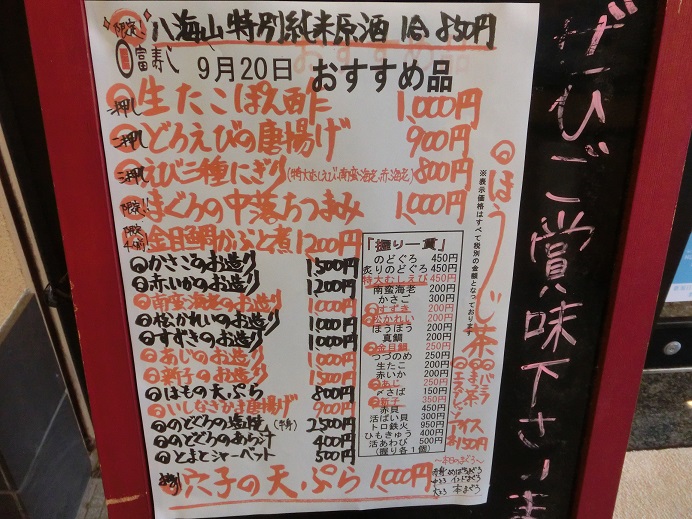 限定!! 八海山 特別純米原酒 1合 850円
富寿し 9月20日 おすすめ品
一押し 生たこぽん酢 1,000円
二押し どろえびの唐揚げ 900円
三押し えび三種にぎり(特大むしえび、南蛮海老、赤海老) 800円
限定!! まぐろの中落ちつまみ 1,000円
限定 金目鯛かぶと煮 1200円
かさごのお造り 1,500円
赤いかのお造り 1,200円
南蛮海老のお造り 1,000円
松かれいのお造り 1,000円
すずきのお造り 1,000円
あじのお造り 1,000円
新子のお造り 1,500円
はもの天ぷら 800円
いしなぎかま唐揚げ 900円
のどぐろの塩焼(半身) 2500円
のどぐろのあら汁 400円
とまとシャーベット 500円
穴子の天ぷら 1,000円
「握り一貫」
のどぐろ 450円
炙りのどぐろ 450円
特大むしえび 450円
南蛮海老 200円
かさご 300円
すずき 200円
松かれい 200円
ほうぼう 200円
真鯛 200円
金目鯛 250円
つづのめ 250円
生たこ 200円
赤いか 200円
あじ 250円
〆さば 150円
新子 350円
赤貝 450円
活ばい貝 300円
トロ鉄火 950円
ひもきゅう 400円
活あわび 500円
(握り各1個)
※表示価格はすべて税別の金額となっております
ほうじ茶
バニラ
アイス
各150円
〜本日のまぐろ〜
ぜひご賞味下さいま